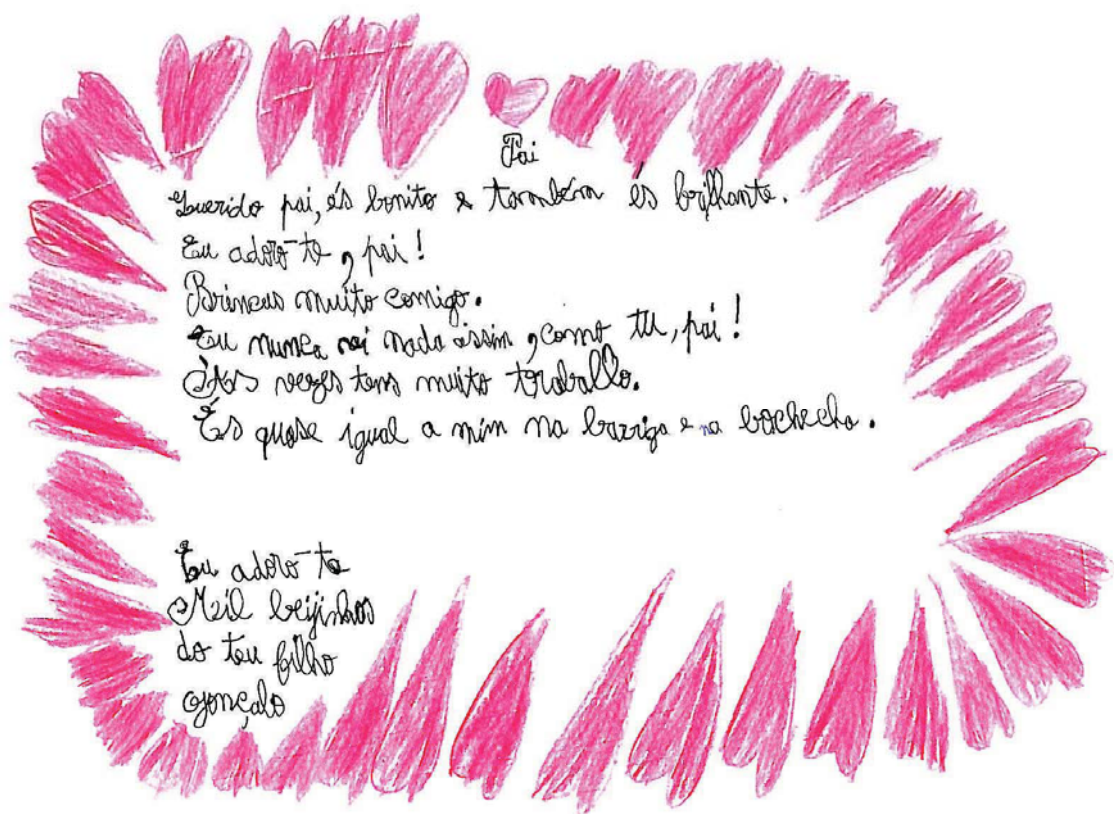 Pai
Querido pai, és bonito e também és brilhante.
Eu adoro-te, pai!
Brincas muito comigo.
Eu nunca vi nada assim, como tu, pai!
Às vezes tens muito traballo.
És quase igual a mim na barriga e na bochecha.
Eu adoro-te
Mil beijinhos
do teu filho
Gonçalo